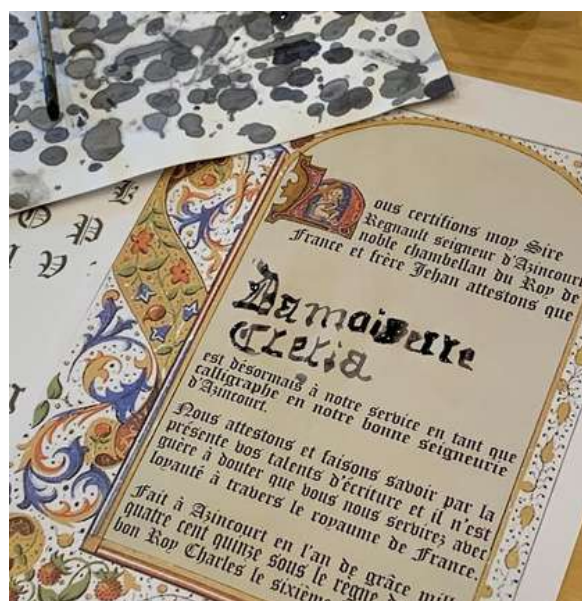 Nous certifions moy Sire
Regnault seigneur d'Azincour
noble chambellan du Roy de
France et frère Jehan attestons que
Damoiselle
Clelia
est désormais à notre service en tant que
calligraphe en notre bonne seigneurie
d'Azincourt.
Nous attestons et faisons savoir par la
présente vos talents d'écriture et il n'est
guère à douter que vous nous servirez avec
loyauté à travers le royaume de France.
Fait à Azincourt en l'an de grâce mill
quatre cent quinze sous le regne d
bon Roy Charles le sixième